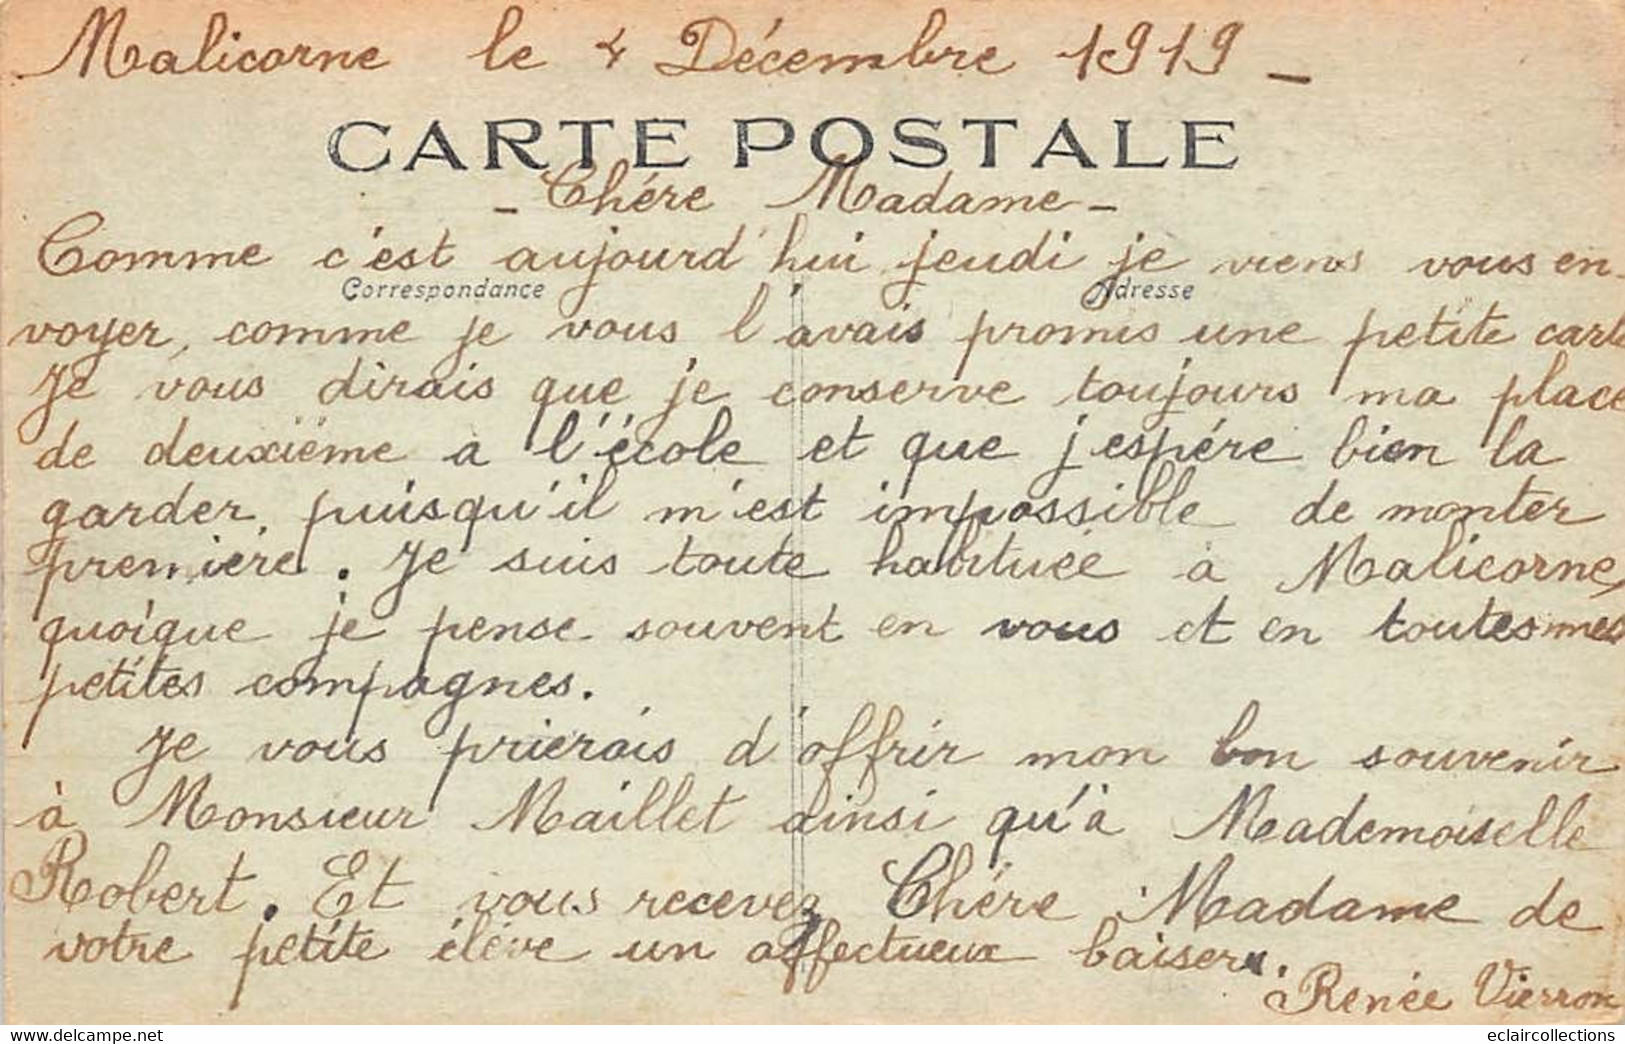 Malicorne le 4 Décembre 1919 _
CARTE POSTALE
- Chére Madame -
Comme c'est aujourd'hui jeudi je viens vous en-
Correspondance
Adresse
voyer, comme je vous l'avais promis une petite carte
Je vous dirais que je conserve toujours ma place
de deuxième a l'école et que j'espére bien la
garder, puisqu'il m'est impossible de monter
première. Je suis toute habituée a Malicorne,
quoique je pense souvent en vous et en toutes mes
petites compagnes.
Je vous prierais d'offrir mon bon souvenir
à Monsieur Maillet ainsi qu'à Mademoiselle
Robert. Et vous recevez Chére Madame de
votre petite élève un affectueux baiser.
Renée Vierron
eclaircollections